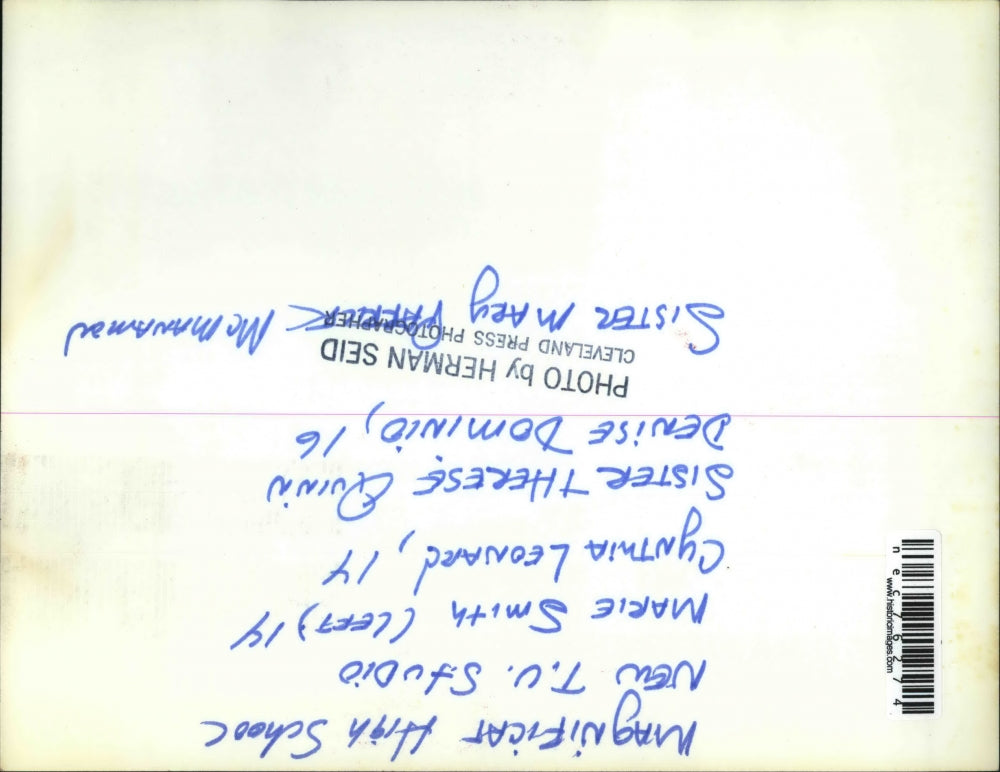 MAGNIFICAT High School
NEW T.V. Studio
MARIE Smith (LEFT) 14
CYNTHIA LEONARD, 14
SISTER THERESE QUINN
DENISE DOMINIO, 16
PHOTO by HERMAN SEID
CLEVELAND PRESS PHOTOGRAPHER
SISTER MARY PATRICK McMANAMON
www.historicimages.com
nec76274